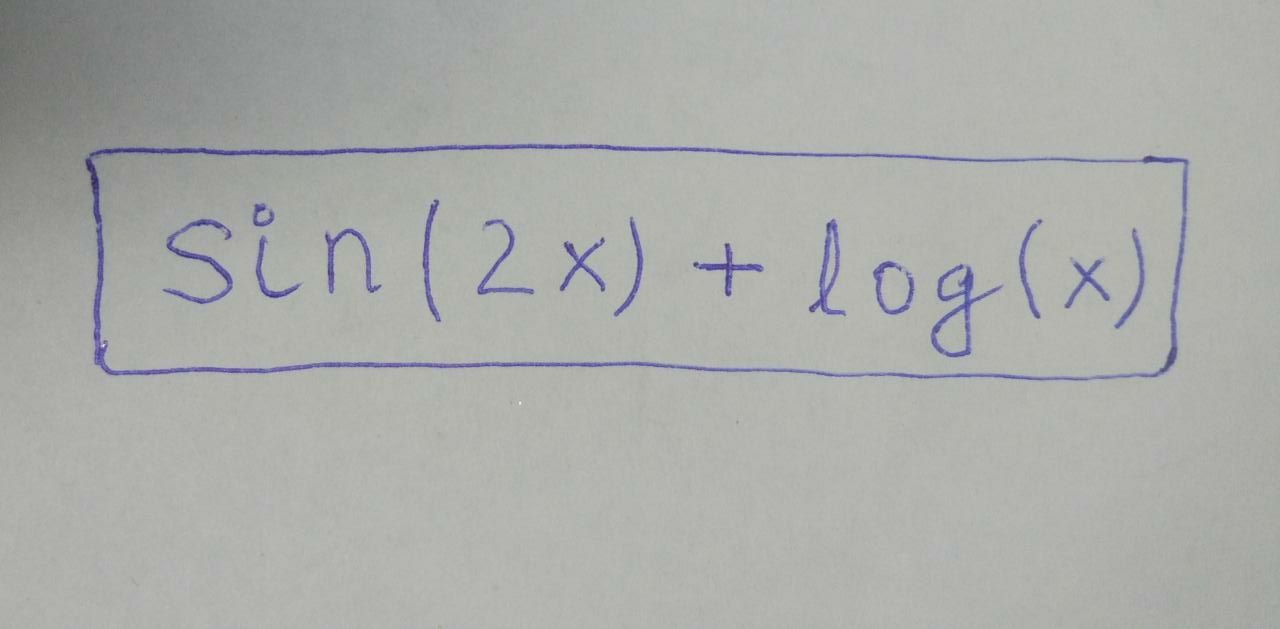 sin(2x) + log(x)